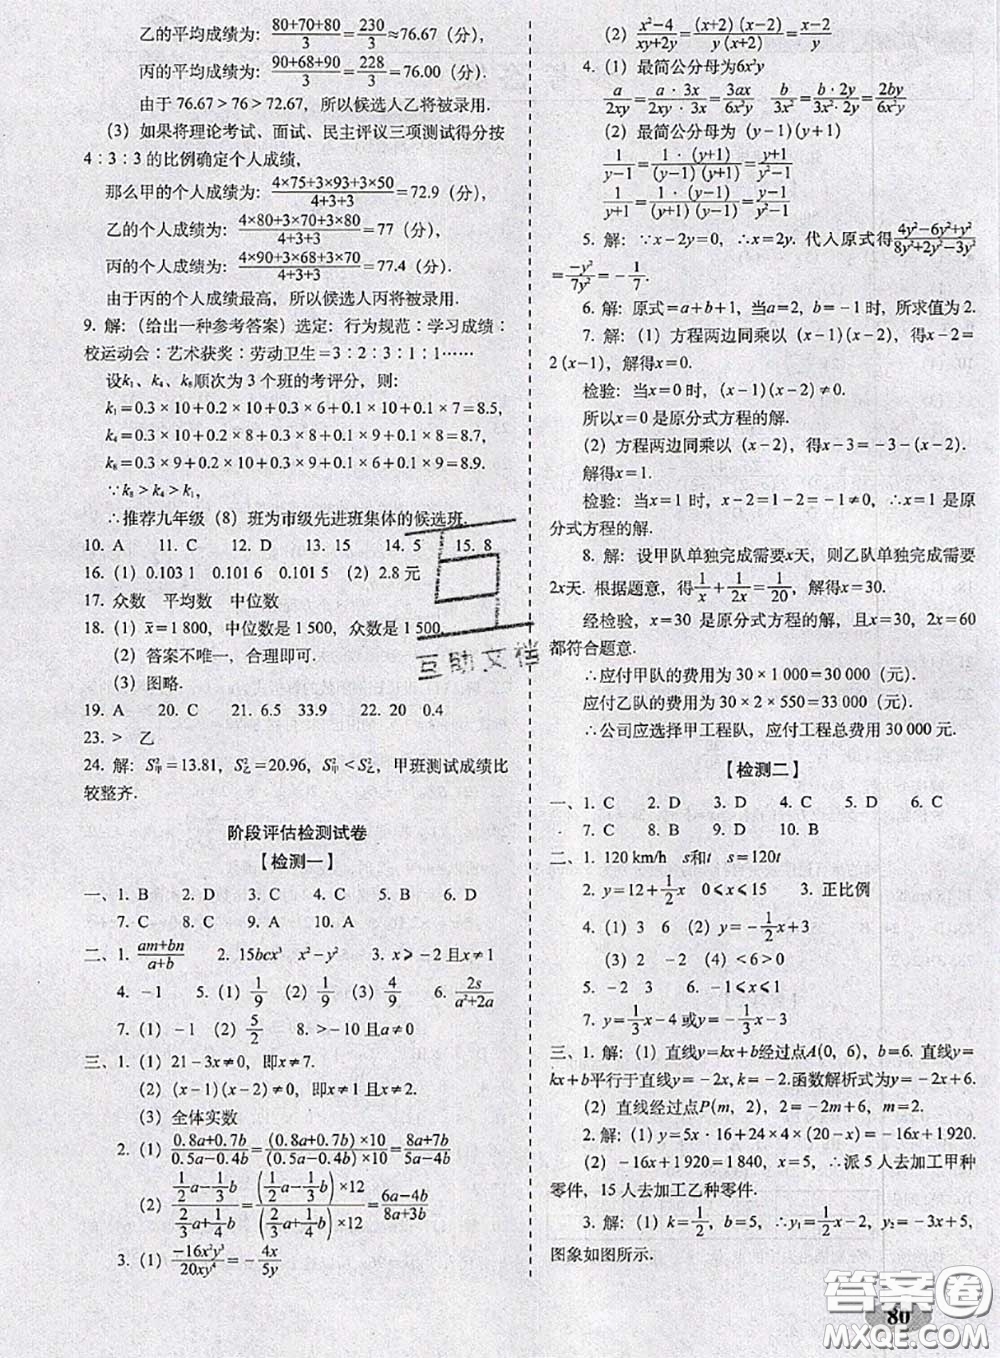 乙的平均成绩为：(80+70+80)/3=230/3≈76.67（分），
丙的平均成绩为：(90+68+90)/3=228/3=76.00（分）．
由于 76.67>76>72.67，所以候选人乙将被录用．
（3）如果将理论考试、面试、民主评议三项测试得分按
4∶3∶3 的比例确定个人成绩，
那么甲的个人成绩为：(4×75+3×93+3×50)/(4+3+3)=72.9（分）
乙的个人成绩为：(4×80+3×70+3×80)/(4+3+3)=77（分）
丙的个人成绩为：(4×90+3×68+3×70)/(4+3+3)=77.4（分）．
由于丙的个人成绩最高，所以候选人丙将被录用．
9. 解：（给出一种参考答案）选定：行为规范∶学习成绩∶
校运动会∶艺术获奖∶劳动卫生=3∶2∶3∶1∶1……
设k₁、k₄、k₈顺次为 3 个班的考评分，则：
k₁=0.3×10+0.2×10+0.3×6+0.1×10+0.1×7=8.5，
k₄=0.3×10+0.2×8+0.3×8+0.1×9+0.1×8=8.7，
k₈=0.3×9+0.2×10+0.3×9+0.1×6+0.1×9=8.9．
∵k₈>k₄>k₁，
∴推荐九年级（8）班为市级先进班集体的候选班．
10. A 11. C 12. D 13. 15 14. 5 15. 8
16.（1）0.103 1 0.101 6 0.101 5 （2）2.8 元
17. 众数 平均数 中位数
18.（1）x̄=1 800，中位数是 1 500，众数是 1 500．
（2）答案不唯一，合理即可．
（3）图略．
19. A 20. C 21. 6.5 33.9 22. 20 0.4
23. > 乙
24. 解：S²甲=13.81，S²乙=20.96，S²甲<S²乙，甲班测试成绩比
较整齐．
阶段评估检测试卷
【检测一】
一、1. B 2. D 3. C 4. C 5. C 6. D
7. C 8. C 9. A 10. A
二、1. (am+bn)/(a+b) 2. 15bcx³ x²−y² 3. x≥−2 且x≠1
4. −1 5.（1）1/9 （2）1/9 （3）4/9 6. 2s/(a²+2a)
7.（1）−1 （2）5/2 8. >−10 且a≠0
三、1.（1）21−3x≠0，即x≠7．
（2）(x−1)(x−2)≠0，即x≠1 且x≠2．
（3）全体实数
2.（1）(0.8a+0.7b)/(0.5a−0.4b)=((0.8a+0.7b)×10)/((0.5a−0.4b)×10)=(8a+7b)/(5a−4b)
（2）(1/2a−1/3b)/(2/3a+1/4b)=((1/2a−1/3b)×12)/((2/3a+1/4b)×12)=(6a−4b)/(8a+3b)
3.（1）−16x²y³/20xy⁴=−4x/5y
（2）(x²−4)/(xy+2y)=((x+2)(x−2))/(y(x+2))=(x−2)/y
4.（1）最简公分母为6x²y
a/2xy=(a·3x)/(2xy·3x)=3ax/6x²y b/3x²=(b·2y)/(3x²·2y)=2by/6x²y
（2）最简公分母为 (y−1)(y+1)
1/(y−1)=(1·(y+1))/((y−1)(y+1))=(y+1)/(y²−1)
1/(y+1)=(1·(y−1))/((y+1)(y−1))=(y−1)/(y²−1)
5. 解：∵x−2y=0，∴x=2y．代入原式得(4y²−6y²+y²)/(8y²+2y²−3y²)
=−y²/7y²=−1/7．
6. 解：原式=a+b+1，当a=2，b=−1 时，所求值为 2．
7. 解：（1）方程两边同乘以 (x−1)(x−2)，得x−2=
2(x−1)，解得x=0．
检验：当x=0 时，(x−1)(x−2)≠0．
所以x=0 是原分式方程的解．
（2）方程两边同乘以 (x−2)，得x−3=−3−(x−2)．
解得x=1．
检验：当x=1 时，x−2=1−2=−1≠0，∴x=1 是原
分式方程的解．
8. 解：设甲队单独完成需要x天，则乙队单独完成需要
2x天．根据题意，得1/x+1/2x=1/20，解得x=30．
经检验，x=30 是原分式方程的解，且x=30，2x=60
都符合题意．
∴应付甲队的费用为 30×1 000=30 000（元）．
应付乙队的费用为 30×2×550=33 000（元）．
∴公司应选择甲工程队，应付工程总费用 30 000 元．
【检测二】
一、1. C 2. D 3. D 4. C 5. D 6. C
7. C 8. B 9. D 10. C
二、1. 120 km/h s和t s=120t
2. y=12+1/2x 0≤x≤15 3. 正比例
4.（1）3 6 （2）y=−1/2x+3
（3）2 2 （4）<6 >0
5. −2 3 6. −1≤x≤1
7. y=1/3x−4 或y=−1/3x−3
三、1. 解：（1）直线y=kx+b经过点A(0，6)，b=6．直线y=
kx+b平行于直线y=−2x，k=−2．函数解析式为y=−2x+6．
（2）直线经过点P(m，2)，2=−2m+6，m=2．
2. 解：（1）y=5x·16+24×4×(20−x)=−16x+1 920．
（2）−16x+1 920=1 840，x=5，∴派 5 人去加工甲种
零件，15 人去加工乙种零件．
3. 解：（1）k=1/2，b=5，∴y₁=1/2x−2，y₂=−3x+5，
图象如图所示．
互助文档
答案圈
MXQE.COM
80